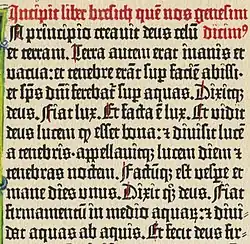 Incipit liber bresith quē nos genesim
A principio creavit deus celū dicimꝰ
et terram. Terra autem erat inanis et
vacua: et tenebre erāt sup facie abissi:
et sp̄s dn̄i ferebat sup aquas. Dixitqꝫ
deus. Fiat lux. Et facta ē lux. Et vidit
deus lucem qꝫ esset bona: ⁊ divisit lucē
a tenebris. appellavitqꝫ lucem diem ⁊
tenebras noctem. Factūqꝫ est vespe et
mane dies unus. Dixit qꝫ deus. Fiat
firmamentū in medio aquaꝝ: ⁊ divi
dat aquas ab aquis. Et fecit deus fir-